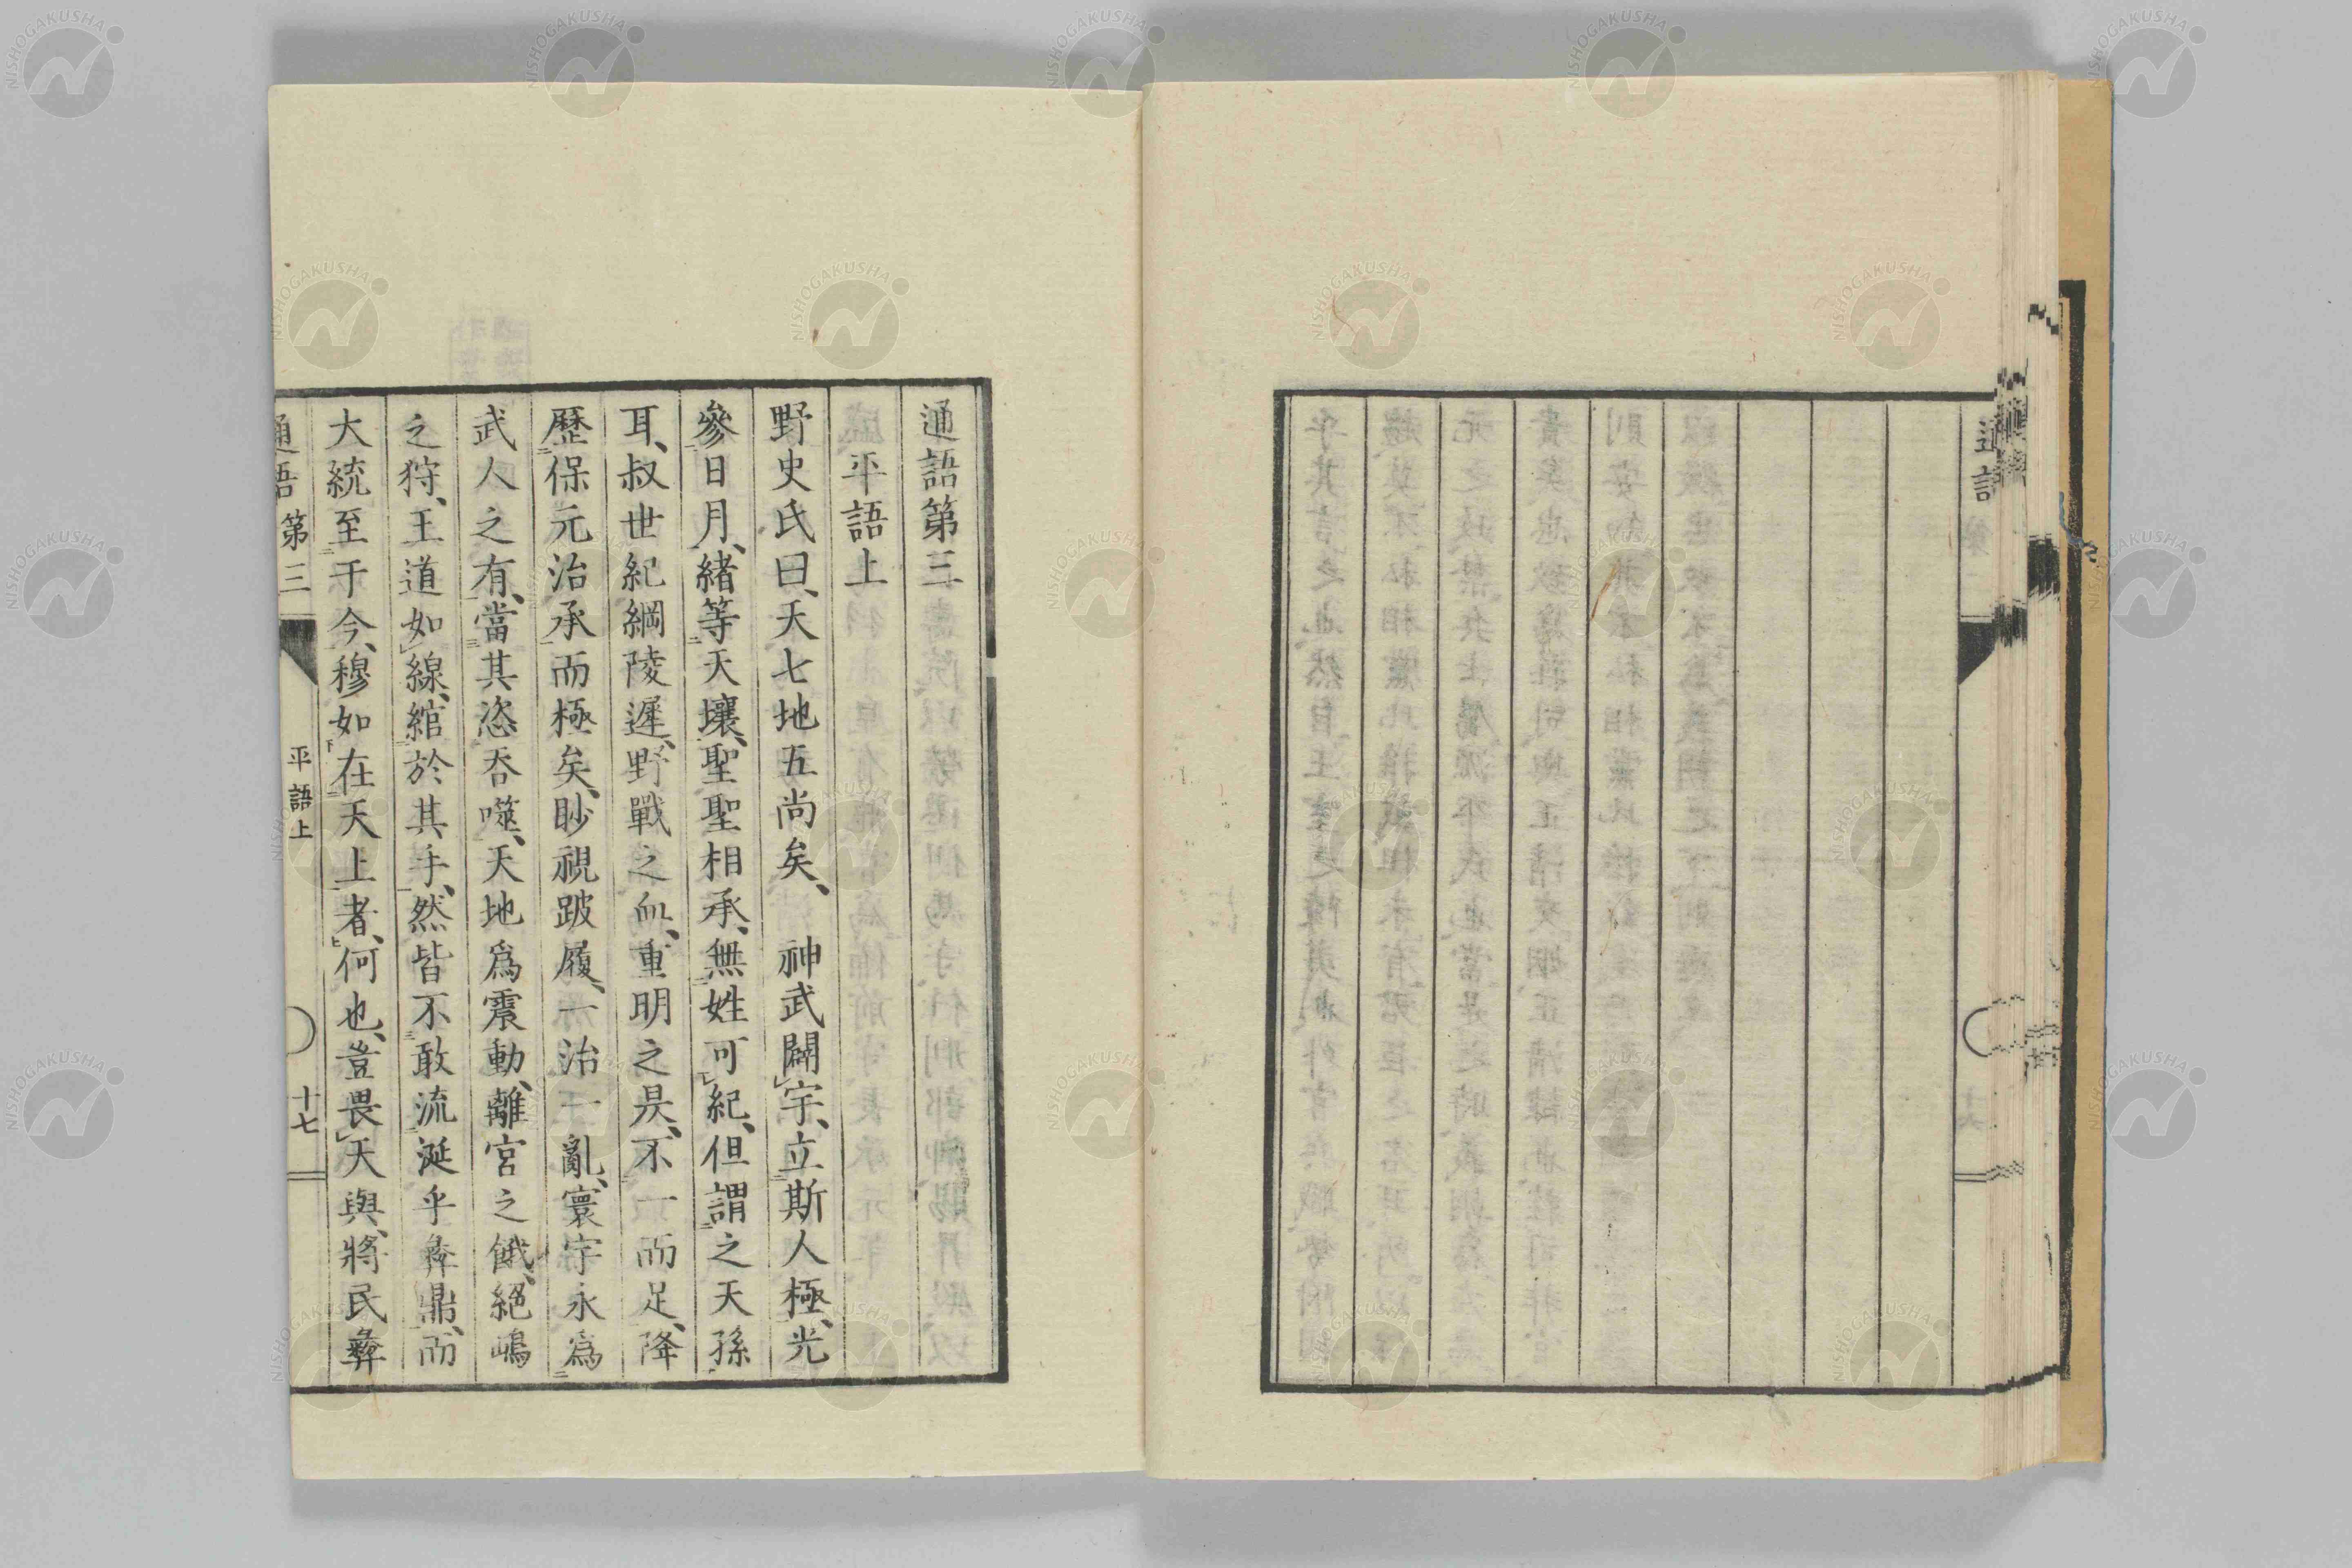 通語第三
平語上
野史氏曰、天七地五尚矣、　神武闢宇、立斯人極、光
參日月、緒等天壤、聖聖相承、無姓可紀、但謂之天孫
耳、叔世紀綱陵遲、野戰之血、重明之昃、不一而足、降
歷保元治承而極矣、眇視跛履、一治一亂、寰宇永爲
武人之有、當其恣呑噬、天地爲震動、離宮之餓、絕嶋
之狩、王道如線、綰於其手、然皆不敢流涎乎彜鼎、而
大統至于今、穆如在天上者、何也、豈畏天與、將民彜
通語第三
平語上
十七
通語
NISHOGAKUSHA